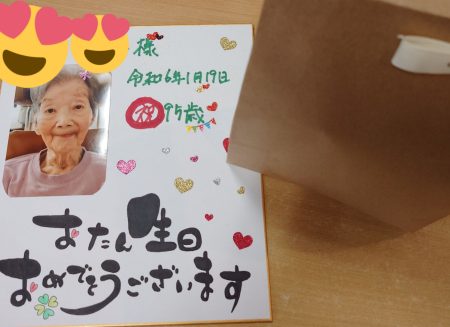 様
令和6年1月19日
祝95歳
おたん生日
おめでとうございます